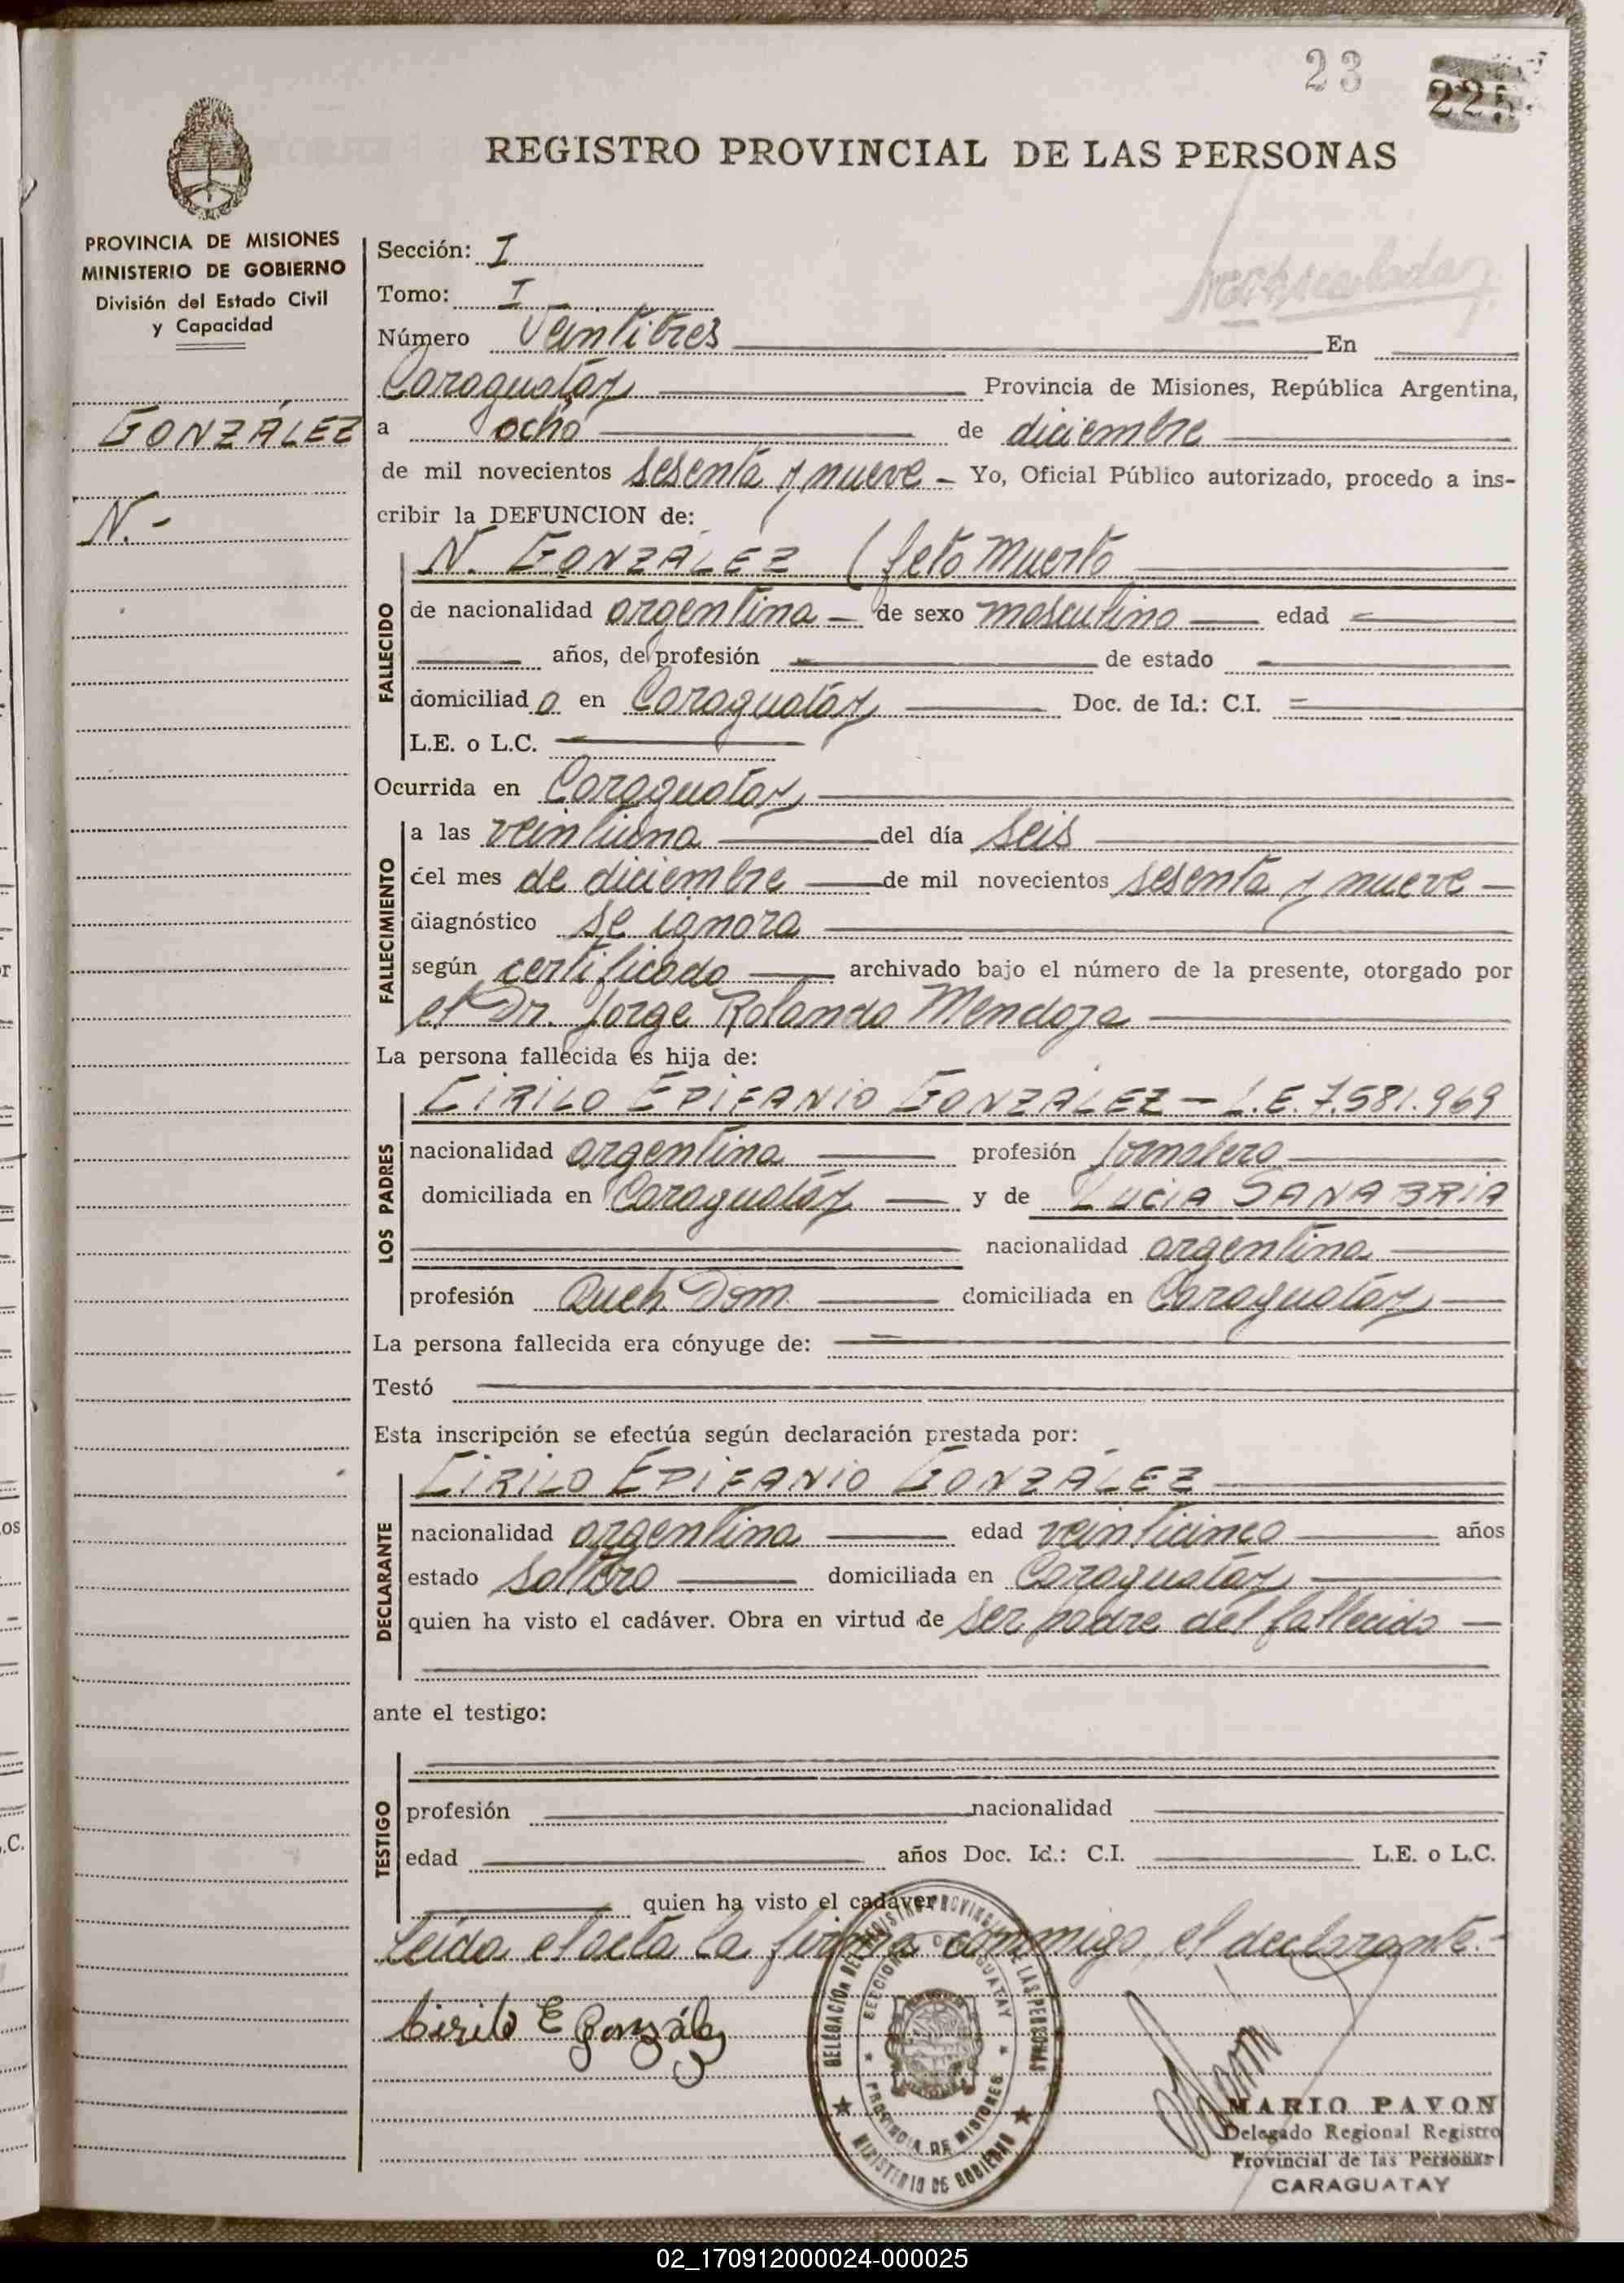 23
225
REGISTRO PROVINCIAL DE LAS PERSONAS
PROVINCIA DE MISIONES
MINISTERIO DE GOBIERNO
División del Estado Civil
y Capacidad
GONZÁLEZ
N.-
Sección: I
Tomo: I
Número Veintitres En
Caraguatay Provincia de Misiones, República Argentina,
a ocho de diciembre
de mil novecientos sesenta y nueve - Yo, Oficial Público autorizado, procedo a ins-
cribir la DEFUNCION de:
N. GONZÁLEZ (feto muerto
FALLECIDO
de nacionalidad argentina - de sexo masculino edad
años, de profesión de estado
domiciliad o en Caraguatáy Doc. de Id.: C.I.
L.E. o L.C.
Ocurrida en Caraguatay
FALLECIMIENTO
a las veintiuna del día seis
del mes de diciembre de mil novecientos sesenta y nueve -
diagnóstico se ignora
según certificado archivado bajo el número de la presente, otorgado por
el Dr. Jorge Rolando Mendoza
La persona fallecida es hija de:
LOS PADRES
CIRILO EPIFANIO GONZÁLEZ - L.E. 7.581.969
nacionalidad argentina profesión jornalero
domiciliada en Caraguatáy y de LUCIA SANABRIA
nacionalidad argentina
profesión Queh. Dom. domiciliada en Caraguatáy
La persona fallecida era cónyuge de:
Testó
Esta inscripción se efectúa según declaración prestada por:
DECLARANTE
CIRILO EPIFANIO GONZÁLEZ
nacionalidad argentina edad veinticinco años
estado soltero domiciliada en Caraguatáy
quien ha visto el cadáver. Obra en virtud de ser padre del fallecido
ante el testigo:
TESTIGO
profesión nacionalidad
edad años Doc. Id.: C.I. L.E. o L.C.
quien ha visto el cadáver
Leída el acta la firma conmigo, el declarante.-
Cirilo E González
DELEGACION DEL REGISTRO PROVINCIAL DE LAS PERSONAS
SECCION CARAGUATAY
PROVINCIA DE MISIONES
MINISTERIO DE GOBIERNO
MARIO PAVON
Delegado Regional Registro
Provincial de las Personas
CARAGUATAY
02_170912000024-000025